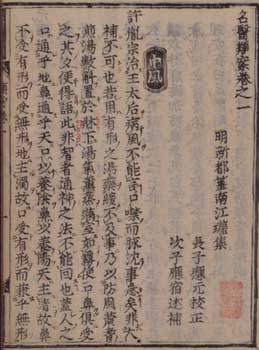 名醫類案卷之一
明新都篁南江瓘集
長子應元校正
次子應宿述補
中風
許胤宗治王太后病風不能言口噤而脉沉事急矣非大
補不可也若用有形之湯藥緩不及事乃以防風黃蓍
煎湯數斛置於牀下湯氣薰蒸滿室如霧使口鼻俱受
之其夕便得語此非智者通神之法不能回也蓋人之
口通乎地鼻通乎天口以養陰鼻以養陽天主清故鼻
不受有形而受無形地主濁故口受有形而兼乎無形